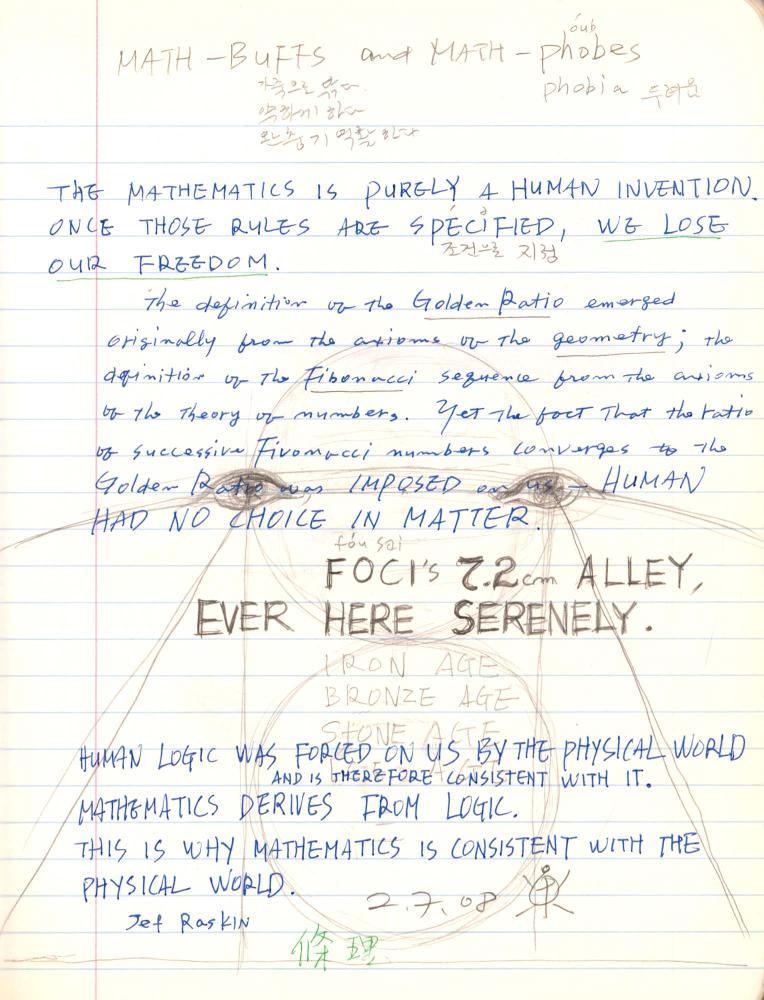 óub
MATH-BUFFS and MATH-phobes
가죽으로 닦다. phobia 두려움
약하게 하다
완충기 역할 한다
THE MATHEMATICS IS PURELY A HUMAN INVENTION.
ONCE THOSE RULES ARE SPÉCIFIED, WE LOSE
조건으로 지정
OUR FREEDOM.
The definition of the Golden Ratio emerged
originally from the axioms of the geometry; the
definition of the Fibonacci sequence from the axioms
of the theory of numbers. Yet the fact that the ratio
of successive Fivonacci numbers converges to the
Golden Ratio was IMPOSED on us – HUMAN
HAD NO CHOICE IN MATTER.
fóu sai
FOCI's 7.2cm ALLEY,
EVER HERE SERENELY.
IRON AGE
BRONZE AGE
STONE AGE
HUMAN LOGIC WAS FORCED ON US BY THE PHYSICAL WORLD
AND IS THEREFORE CONSISTENT WITH IT.
MATHEMATICS DERIVES FROM LOGIC.
THIS IS WHY MATHEMATICS IS CONSISTENT WITH THE
PHYSICAL WORLD.
2.7.08
Jef Raskin
條理